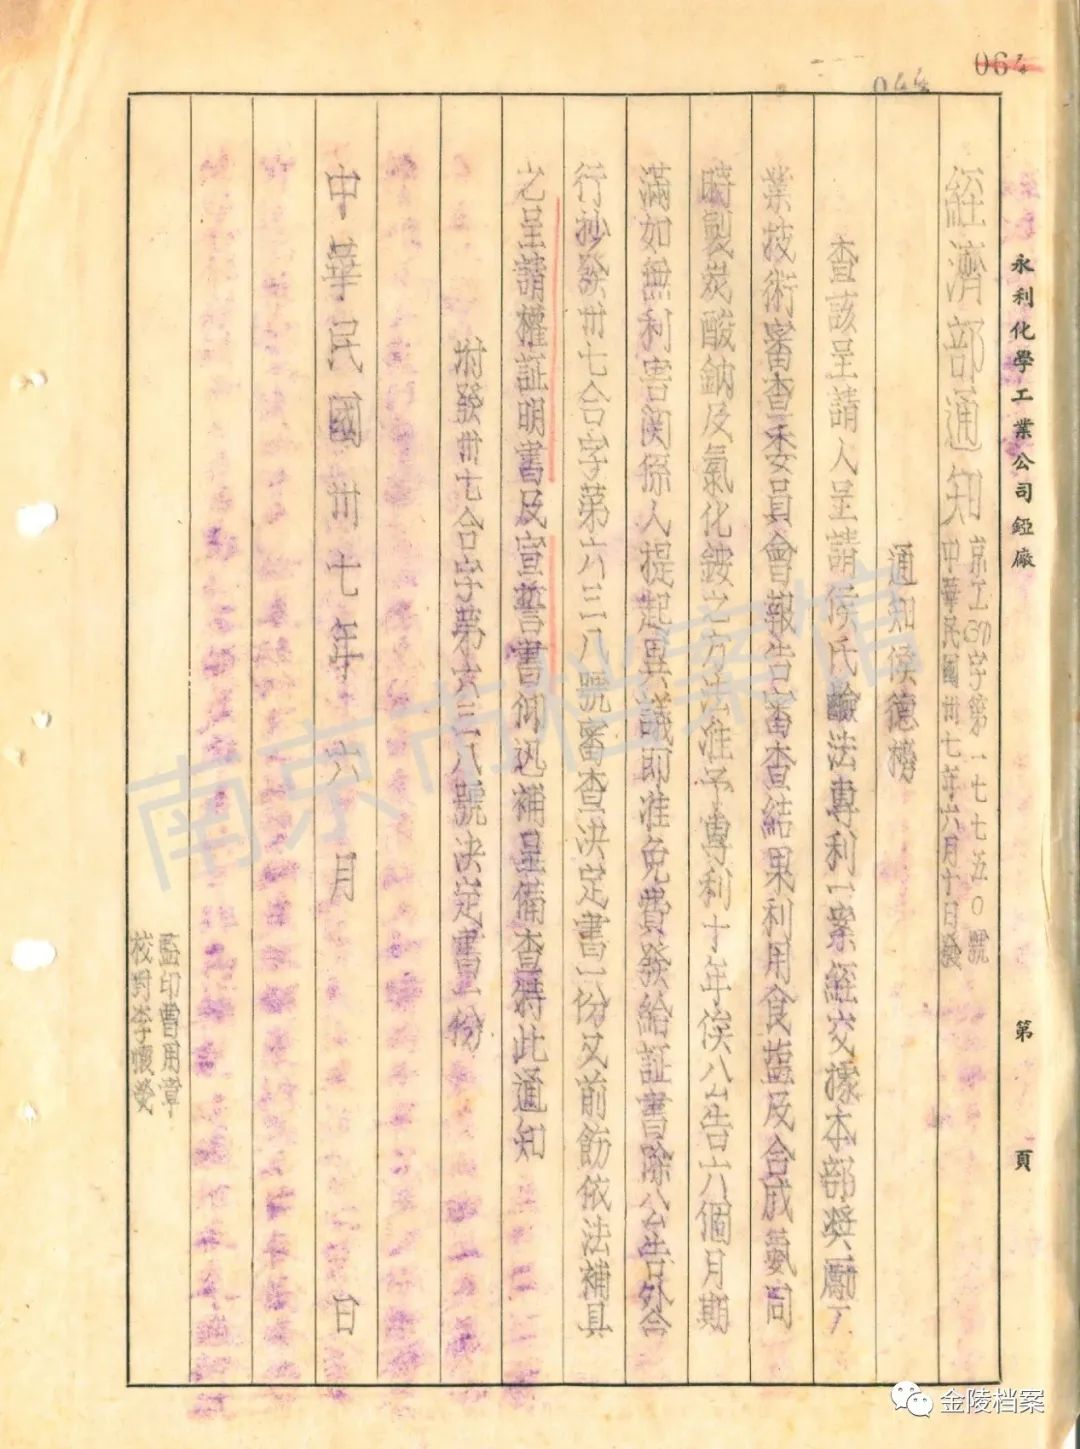 064
044
永利化學工業公司錏廠
第 頁
經濟部通知
京工(37)字第一七七五〇號
中華民國卅七年六月十日發
通知侯德榜
查該呈請人呈請侯氏鹼法專利一案經交據本部獎勵工
業技術審查委員會報告審查結果利用食鹽及合成氨同
時製炭酸鈉及氯化銨之方法准予專利十年俟公告六個月期
滿如無利害関係人提起異議即准免費發給証書除公告外合
行抄發卅七合字第六三八號審查決定書一份又前飭依法補具
之呈請權証明書及宣誓書仰迅補呈備查特此通知
附發卅七合字第六三八號決定書一份
中華民國卅七年六月 日
監印曹用章
校對李懷
南京市档案馆
金陵档案